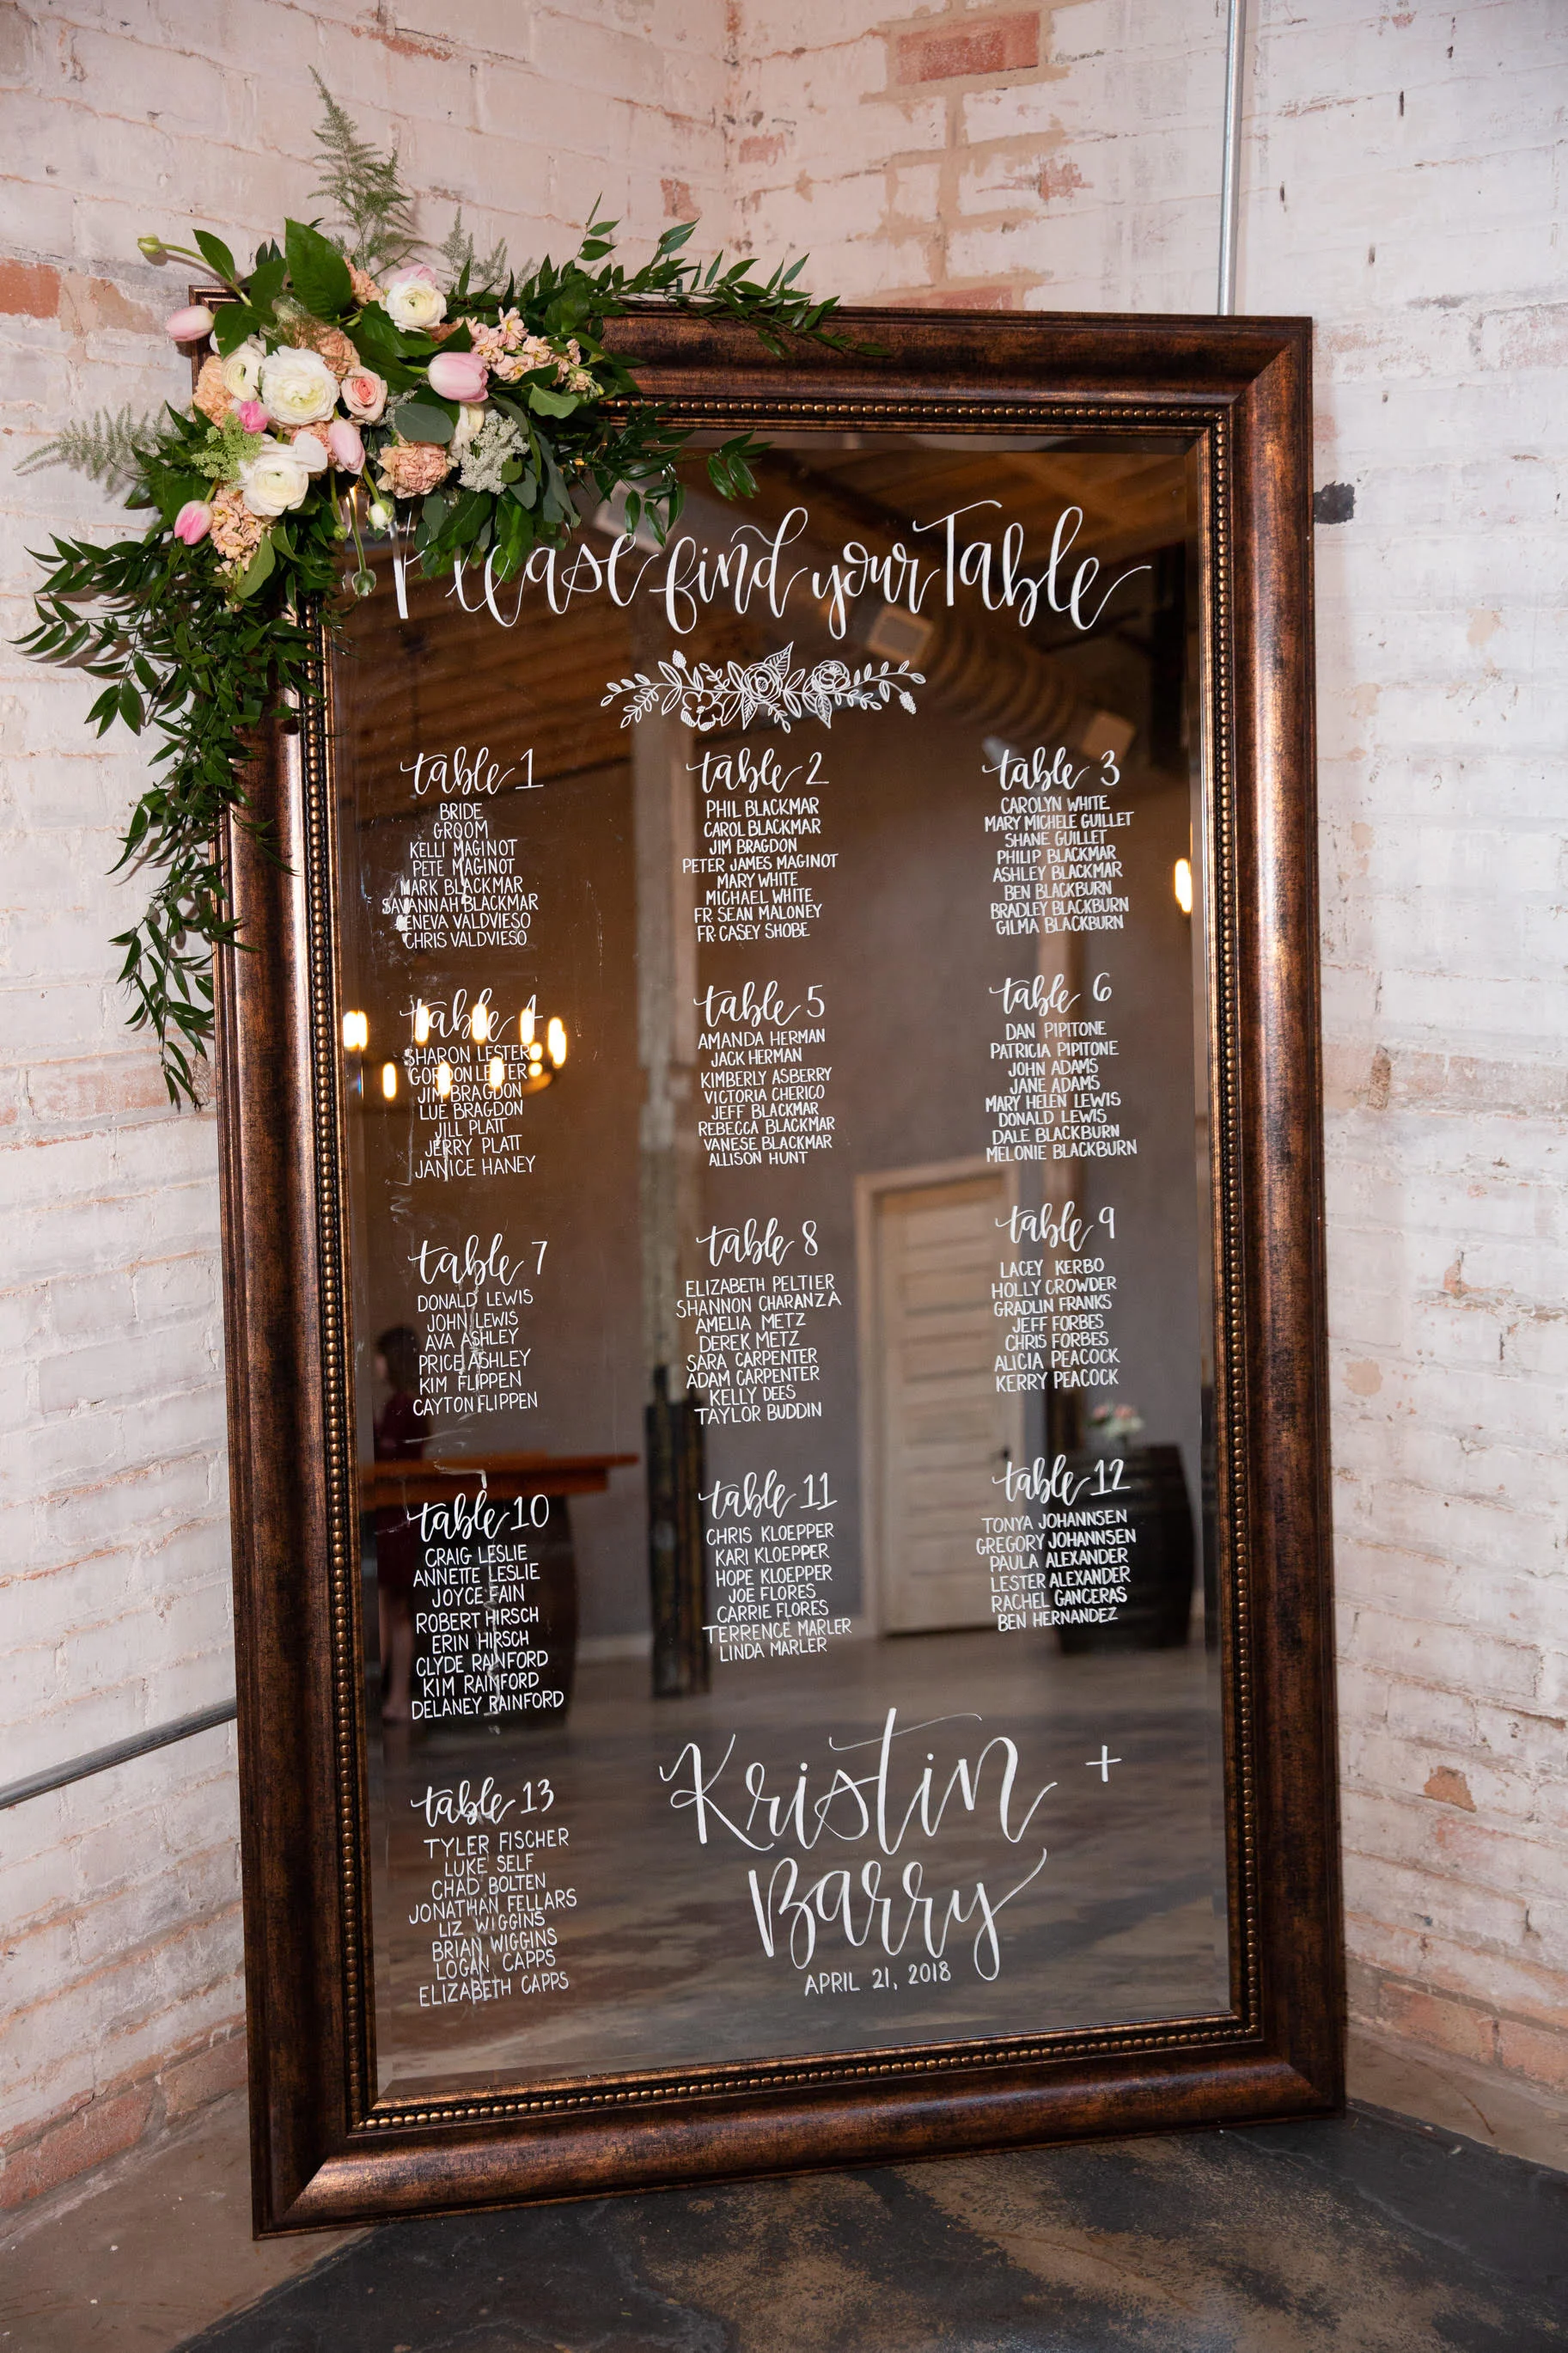 Please find your Table
table 1
BRIDE
GROOM
KELLI MAGINOT
PETE MAGINOT
MARK BLACKMAR
SAVANNAH BLACKMAR
GENEVA VALDVIESO
CHRIS VALDVIESO
table 2
PHIL BLACKMAR
CAROL BLACKMAR
JIM BRAGDON
PETER JAMES MAGINOT
MARY WHITE
MICHAEL WHITE
FR SEAN MALONEY
FR. CASEY SHOBE
table 3
CAROLYN WHITE
MARY MICHELE GUILLET
SHANE GUILLET
PHILIP BLACKMAR
ASHLEY BLACKMAR
BEN BLACKBURN
BRADLEY BLACKBURN
GILMA BLACKBURN
table 4
SHARON LESTER
GORDON LESTER
JIM BRAGDON
LUE BRAGDON
JILL PLATT
JERRY PLATT
JANICE HANEY
table 5
AMANDA HERMAN
JACK HERMAN
KIMBERLY ASBERRY
VICTORIA CHERICO
JEFF BLACKMAR
REBECCA BLACKMAR
VANESE BLACKMAR
ALLISON HUNT
table 6
DAN PIPITONE
PATRICIA PIPITONE
JOHN ADAMS
JANE ADAMS
MARY HELEN LEWIS
DONALD LEWIS
DALE BLACKBURN
MELONIE BLACKBURN
table 7
DONALD LEWIS
JOHN LEWIS
AVA ASHLEY
PRICE ASHLEY
KIM FLIPPEN
CAYTON FLIPPEN
table 8
ELIZABETH PELTIER
SHANNON CHARANZA
AMELIA METZ
DEREK METZ
SARA CARPENTER
ADAM CARPENTER
KELLY DEES
TAYLOR BUDDIN
table 9
LACEY KERBO
HOLLY CROWDER
GRADLIN FRANKS
JEFF FORBES
CHRIS FORBES
ALICIA PEACOCK
KERRY PEACOCK
table 10
CRAIG LESLIE
ANNETTE LESLIE
JOYCE FAIN
ROBERT HIRSCH
ERIN HIRSCH
CLYDE RAINFORD
KIM RAINFORD
DELANEY RAINFORD
table 11
CHRIS KLOEPPER
KARI KLOEPPER
HOPE KLOEPPER
JOE FLORES
CARRIE FLORES
TERRENCE MARLER
LINDA MARLER
table 12
TONYA JOHANNSEN
GREGORY JOHANNSEN
PAULA ALEXANDER
LESTER ALEXANDER
RACHEL GANCERAS
BEN HERNANDEZ
table 13
TYLER FISCHER
LUKE SELF
CHAD BOLTEN
JONATHAN FELLARS
LIZ WIGGINS
BRIAN WIGGINS
LOGAN CAPPS
ELIZABETH CAPPS
Kristin +
Barry
APRIL 21, 2018